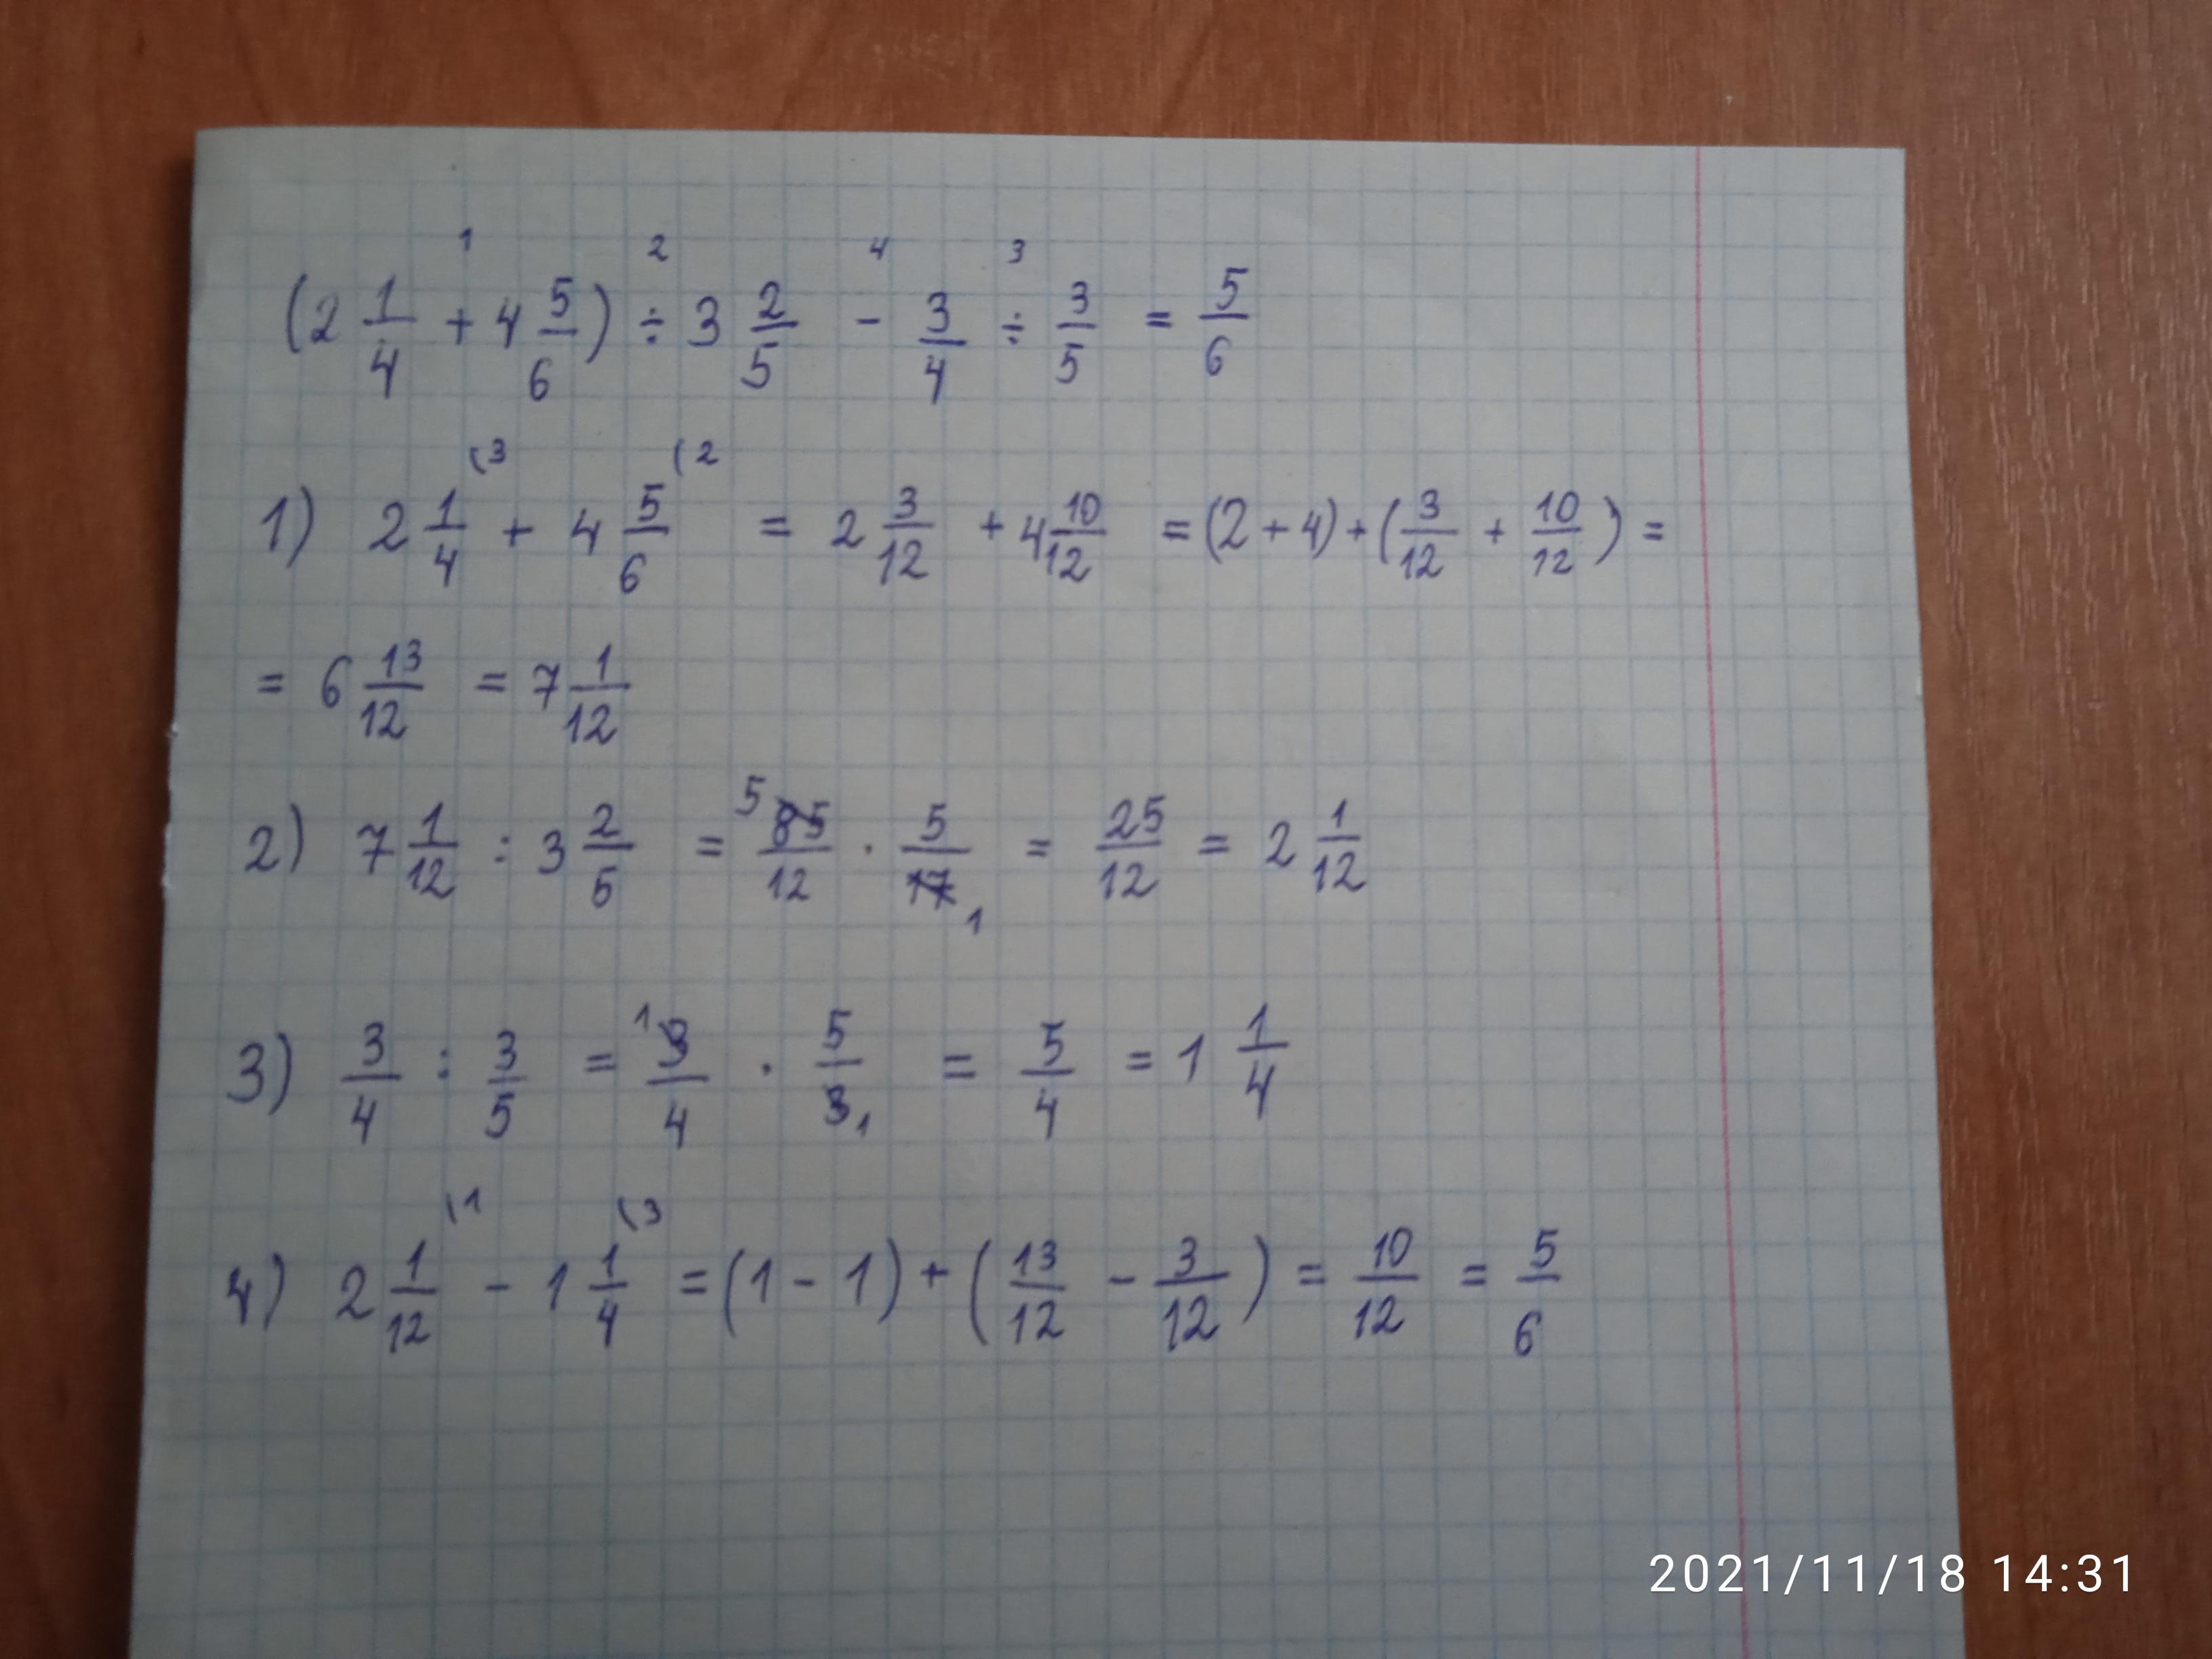 1 2 4 3
(2 1/4 + 4 5/6) ÷ 3 2/5 - 3/4 ÷ 3/5 = 5/6
1) 2 1/4 (3 + 4 5/6 (2 = 2 3/12 + 4 10/12 = (2 + 4) + (3/12 + 10/12) =
= 6 13/12 = 7 1/12
2) 7 1/12 : 3 2/5 = 5 85/12 · 5/17 1 = 25/12 = 2 1/12
3) 3/4 : 3/5 = 1 3/4 · 5/3 1 = 5/4 = 1 1/4
4) 2 1/12 (1 - 1 1/4 (3 = (1 - 1) + (13/12 - 3/12) = 10/12 = 5/6
2021/11/18 14:31